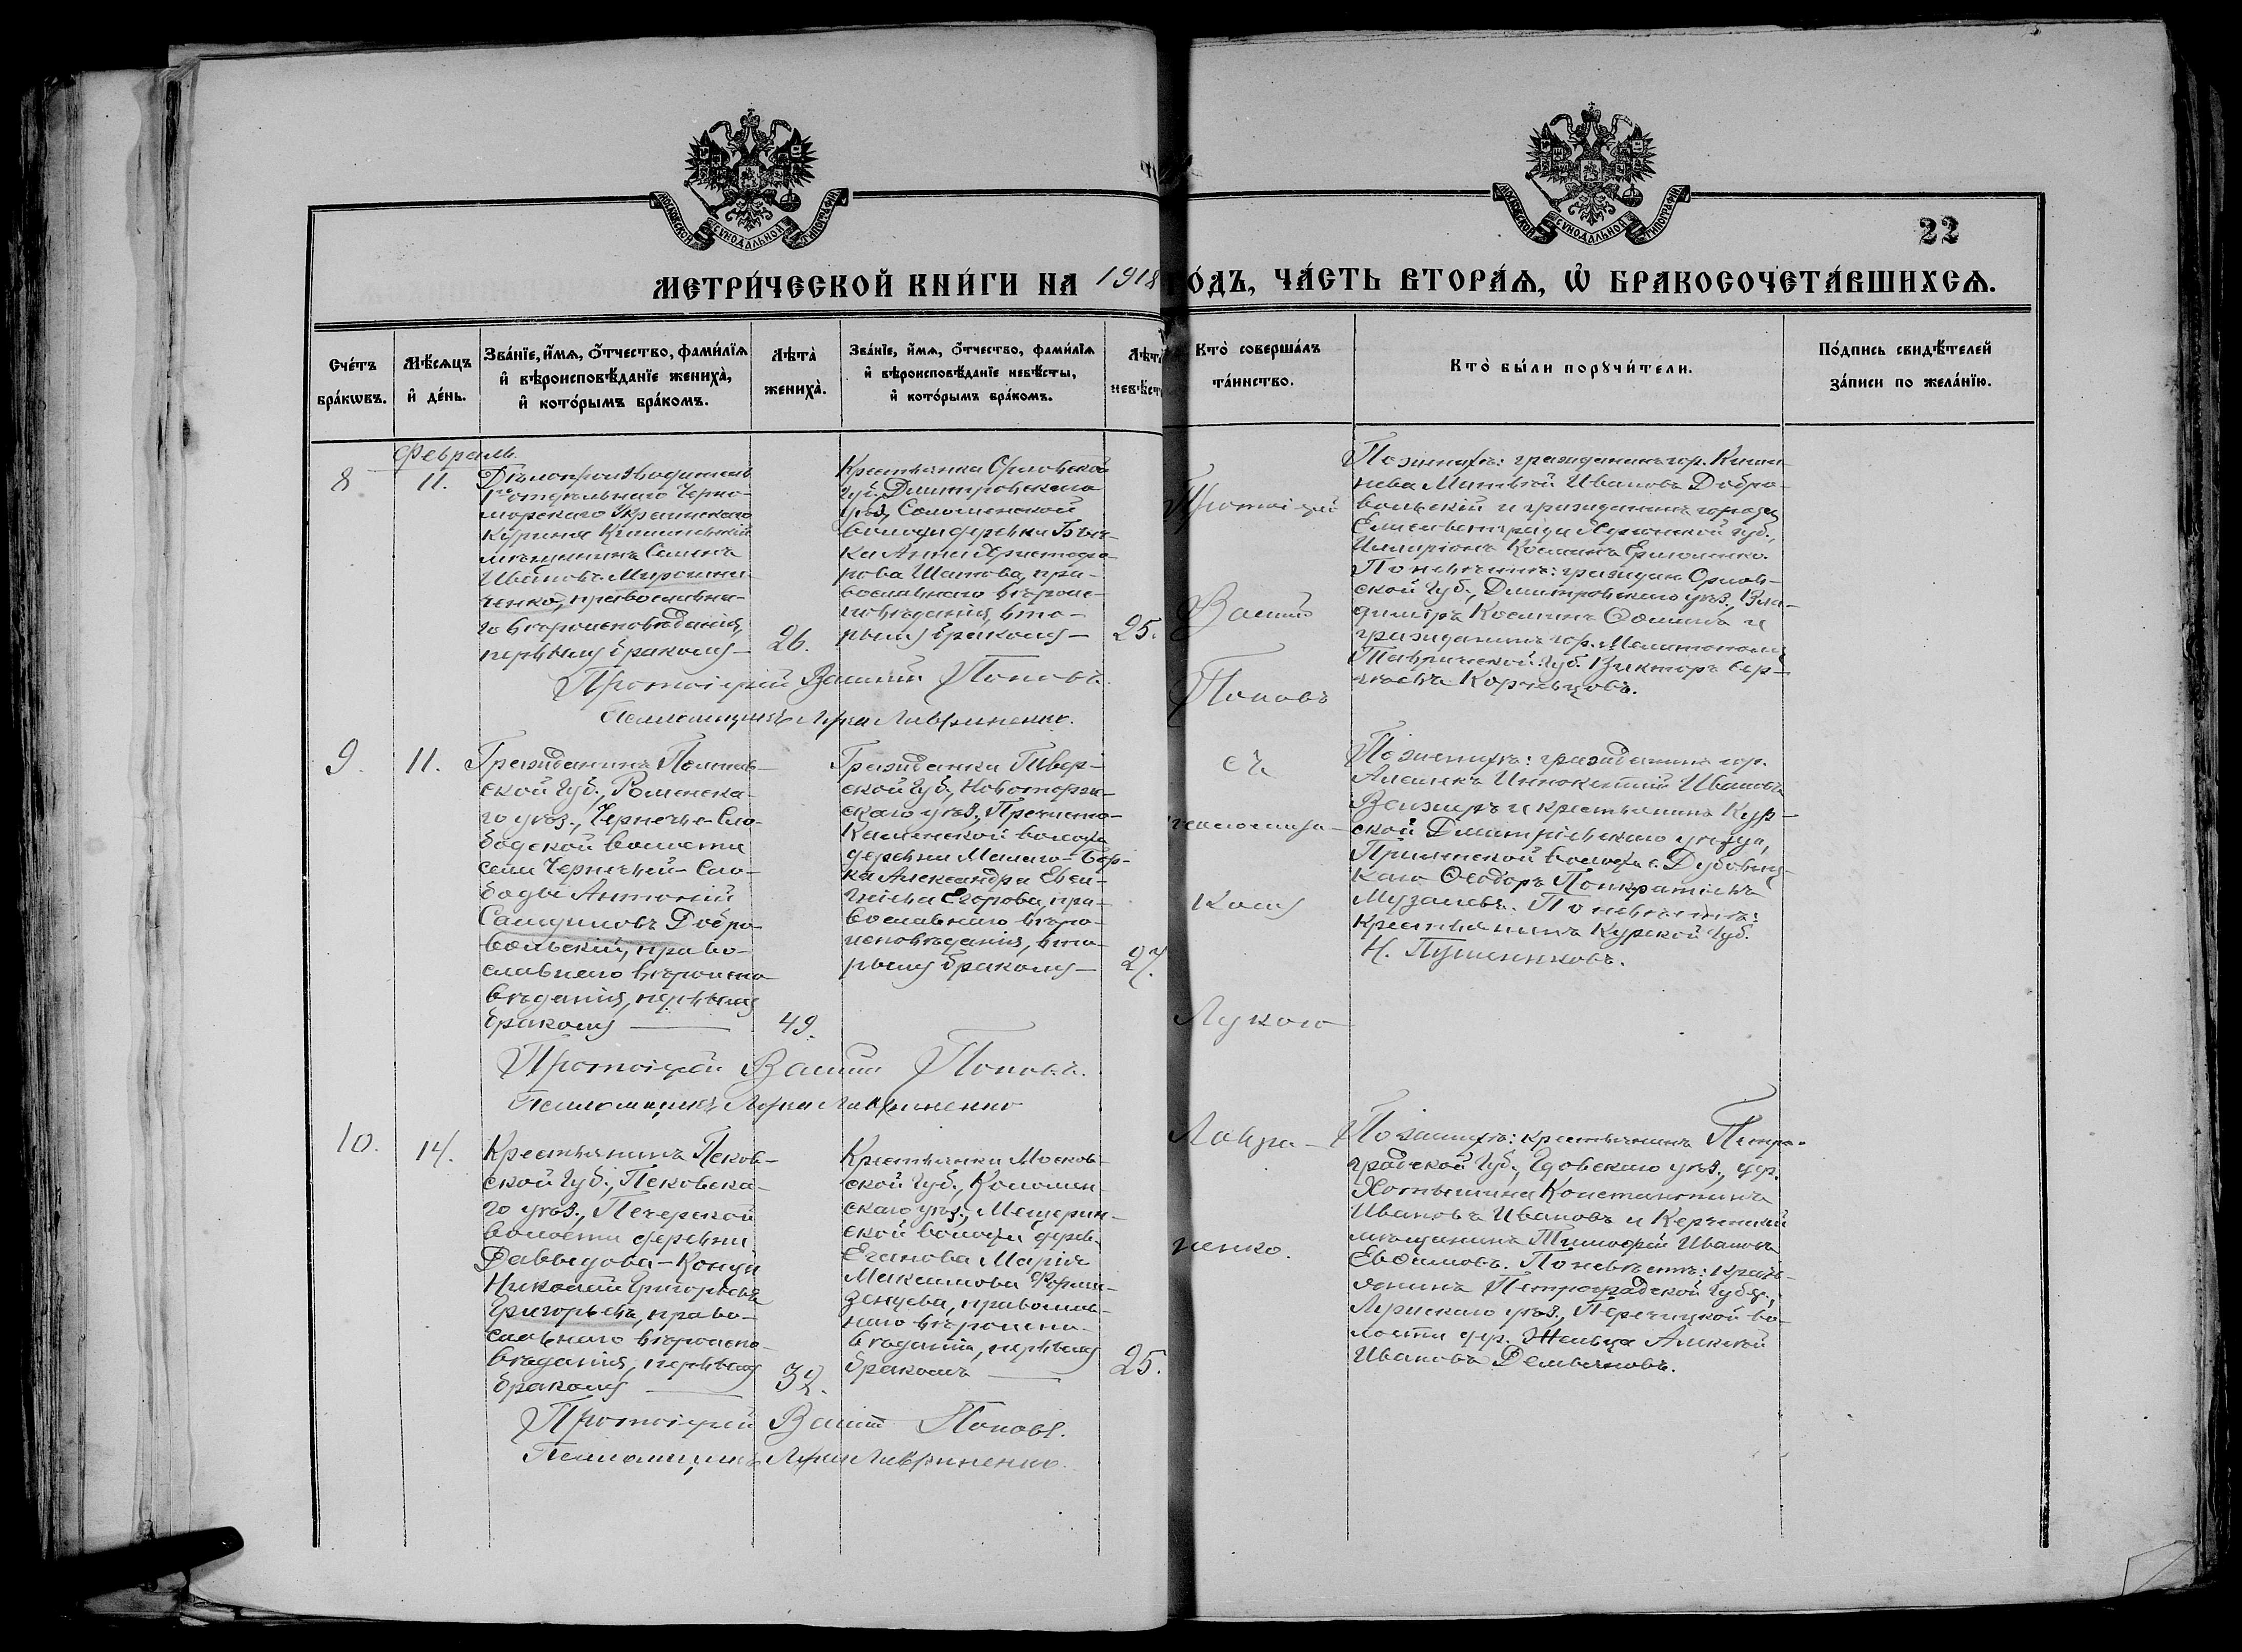 МОСКОВСКОЙ СѴНОДАЛЬНОЙ ТИПОГРАФІИ
МОСКОВСКОЙ СѴНОДАЛЬНОЙ ТИПОГРАФІИ
22
МЕТРИ́ЧЕСКОЙ КНИ́ГИ НА 1918 ГО́ДЪ, ЧА́СТЬ ВТОРА́Ѧ, Ѽ БРАКОСОЧЕТА́ВШИХСѦ.
Сче́тъ бра́кѡвъ.
Мѣ́сѧцъ и҆ де́нь.
Зва́нїе, и҆́мѧ, ѻ҆́тчество, фами́лїѧ и҆ вѣроисповѣ́данїе жениха̀, и҆ кото́рымъ бра́комъ.
Лѣта̀ жениха̀.
Зва́нїе, и҆́мѧ, ѻ҆́тчество, фами́лїѧ и҆ вѣроисповѣ́данїе невѣ́сты, и҆ кото́рымъ бра́комъ.
Лѣта̀ невѣ́сты
Кто̀ соверша́лъ та́инство.
Кто̀ бы́ли порꙋчи́тели.
По́дпись свидѣ́телей за́писи по жела́нїю.
Февраль.
8
11.
Дѣлопроизводитель
1го отдѣльнаго Черно-
морскаго Украинскаго
Куреня Кишиневскій
мѣщанинъ Семенъ
Ивановъ Мирошни-
ченко, православна-
го вѣроисповѣданія,
первымъ бракомъ —
26.
Крестьянка Орловской
губ. Дмитровскаго
уѣз. Соломенской
волости деревни
Анна Христофо-
рова Шатова, пра-
вославнаго вѣроис-
повѣданія, вто-
рымъ бракомъ —
25.
Протоіерей
Василій
Поповъ
По женихѣ: гражданинъ гор. Киши-
нева Матвѣй Ивановъ Добро-
вольскій и гражданинъ города
Елисаветграда Херсонской губ.,
Косминъ Ермоленко.
По невѣстѣ: граждан. Орлов-
ской губ., Дмитровскаго уѣз., Вла-
димиръ Косминъ Ѳоминъ и
гражданинъ гор. Мелитополя
Таврической губ. Викторъ Сер-
гѣевъ Корчевцовъ.
Протоіерей Василій Поповъ.
Псаломщикъ Лука Лавриненко.
9.
11.
Гражданинъ Полтав-
ской губ., Роменска-
го уѣз., Чернече-Сло-
бодской волости
села Чернечей-Сло-
боды Антоній
Самуиловъ Добро-
вольскій, право-
славнаго вѣроиспо-
вѣданія, первымъ
бракомъ —
49.
Гражданка Твер-
ской губ., Новоторж-
скаго уѣз., Пречисто-
Каменской волости
деревни Малаго-Бор-
ка Александра Евге-
ніева Егорова, пра-
вославнаго вѣро-
исповѣданія, вто-
рымъ бракомъ —
27.
съ
псаломщи-
комъ
Лукою
По женихѣ: гражданинъ гор.
Алешекъ Иннокентій Ивановъ
и крестьянинъ Кур-
ской Дмитріевскаго уѣзда,
волости с.
Ѳеодоръ Панкратіевъ
По невѣстѣ:
крестьянинъ Курской губ.
Н. Пушенковъ.
Протоіерей Василій Поповъ.
Псаломщикъ Лука Лавриненко
10.
14.
Крестьянинъ Псков-
ской губ., Псковска-
го уѣз., Печерской
волости деревни
Давыдова-Конца
Николай Григорьевъ
Григорьевъ, право-
славнаго вѣроиспо-
вѣданія, первымъ
бракомъ —
32.
Крестьянка Москов-
ской губ., Коломен-
скаго уѣз., Мещерин-
ской волости дерев.
Еганова Марія
Максимова
православ-
наго вѣроиспо-
вѣданія, первымъ
бракомъ —
25.
Лаври-
ненко.
По женихѣ: крестьянинъ Петро-
градской губ., Гдовскаго уѣз., дер.
Константинъ
Ивановъ Ивановъ и Керченскій
мѣщанинъ Тимофей Ивановъ
Евдимовъ. По невѣстѣ: кресть-
янинъ Петроградской губер.,
Лужскаго уѣз., Перечицкой во-
лости дер. Жельца Алексѣй
Ивановъ Демьяновъ.
Протоіерей Василій Поповъ.
Псаломщикъ Лука Лавриненко.